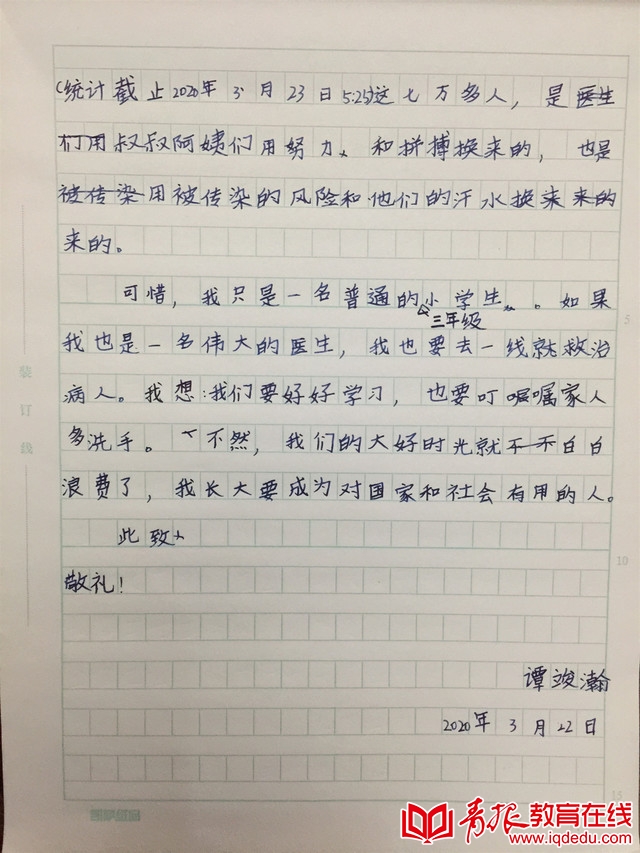 (统计截止2020年3月23日5:25)这七万多人，是医生
们用叔叔阿姨们用努力、和拼搏换来的，也是
被传染用被传染的风险和他们的汗水换来来的
来的。
可惜，我只是一名普通的小学生。如果
三年级
我也是一名伟大的医生，我也要去一线就救治
病人。我想:我们要好好学习，也要叮嘱嘱家人
多洗手。不然，我们的大好时光就不不白白
浪费了，我长大要成为对国家和社会有用的人。
此致
敬礼!
谭竣瀚
2020年3月22日
装订线
5
10
15
青报教育在线
www.iqdedu.com